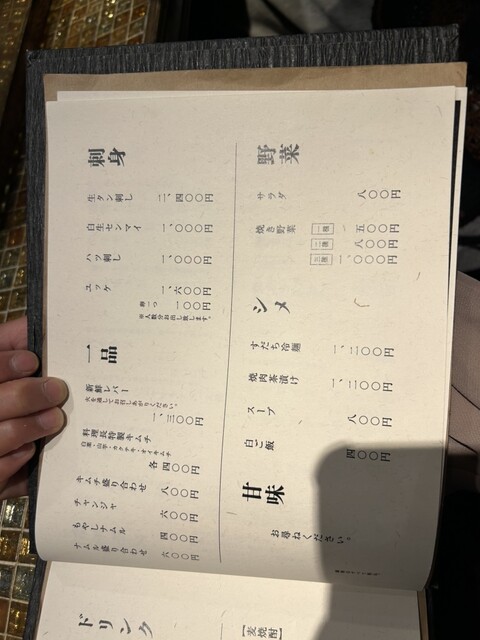 刺身
生タン刺し 二、四〇〇円
白生センマイ 一、〇〇〇円
ハツ刺し 一、〇〇〇円
ユッケ 一、六〇〇円
卵一つ 一〇〇円
※人数分お出し致します。
一品
新鮮レバー
火を通してお召しあがりください。
一、三〇〇円
料理長特製キムチ
白菜・山芋・カクテキ・オイキムチ
各四〇〇円
キムチ盛り合わせ 八〇〇円
チャンジャ 六〇〇円
もやしナムル 四〇〇円
ナムル盛り合わせ 六〇〇円
野菜
サラダ 八〇〇円
焼き野菜 一種 五〇〇円
二種 八〇〇円
三種 一、〇〇〇円
シメ
すだち冷麺 一、二〇〇円
焼肉茶漬け 一、二〇〇円
スープ 八〇〇円
白ご飯 四〇〇円
甘味
お尋ねください。
ドリンク
【麦焼酎】